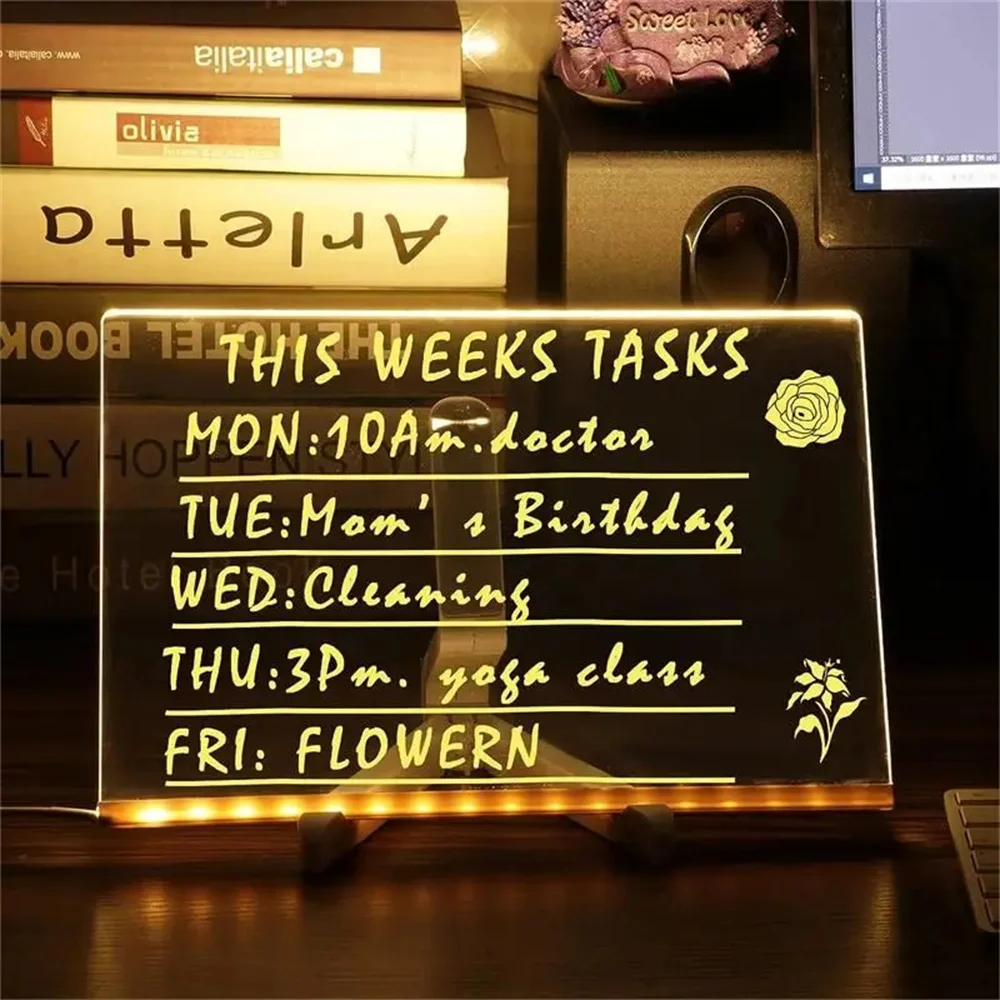 www.caliaitalia.c
caliaitalia
Sweet Love
olivia
Arletta
THE HOTEL BOOK
LLY HOPPEN STY
THIS WEEKS TASKS
MON:10Am.doctor
TUE:Mom's Birthday
WED:Cleaning
THU:3Pm. yoga class
FRI: FLOWERN